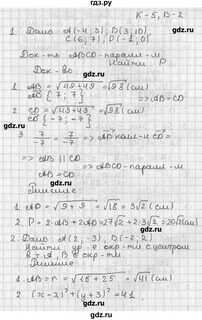 К-5, В-2
1. Дано: А(-4; 3), В(3; 10),
С(6; 7), D(-1; 0)
Док-ть: ABCD-парал-м
Найти: P
Док-во:
1. AB = √49+49 = √98 (см)
AB {7; 7} => AB = CD
2. CD = √49+49 = √98 (см)
CD {-7; -7}
3. 7/-7 = 7/-7 =>
=> AB || CD
=> ABCD-парал-м
Решение:
1. AD = √9+9 = √18 = 3√2 (см)
2. P = 2·AB + 2AD = 2·7√2 + 2·3√2 = 20√2 (см)
2. Дано: А(2; -3), В(-2; 2)
Найти: ур-е окр-ти с центром
в т. А, В ∈ окр-ти
Решение:
1. AB = r = √16+25 = √41 (см)
2. (x-2)² + (y+3)² = 41.
gdz.ru
gdz.ru
gdz.ru
gdz.ru
gdz.ru
gdz.ru
gdz.ru
gdz.ru
gdz.ru